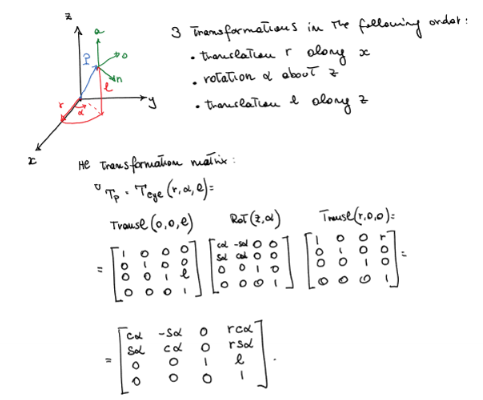 z
a
P
o
n
l
r
α
y
x
3 Transformations in the following order:
• translation r along x
• rotation α about z
• translation l along z
He transformation matrix:
ᵁTₚ = T_cyl (r,α,l) =
Transl (0,0,l) Rot (z,α) Transl (r,0,0) =
= [1 0 0 0] [cα -sα 0 0] [1 0 0 r]
[0 1 0 0] [sα cα 0 0] [0 1 0 0] =
[0 0 1 l] [0 0 1 0] [0 0 1 0]
[0 0 0 1] [0 0 0 1] [0 0 0 1]
= [cα -sα 0 rcα]
[sα cα 0 rsα]
[0 0 1 l]
[0 0 0 1] .